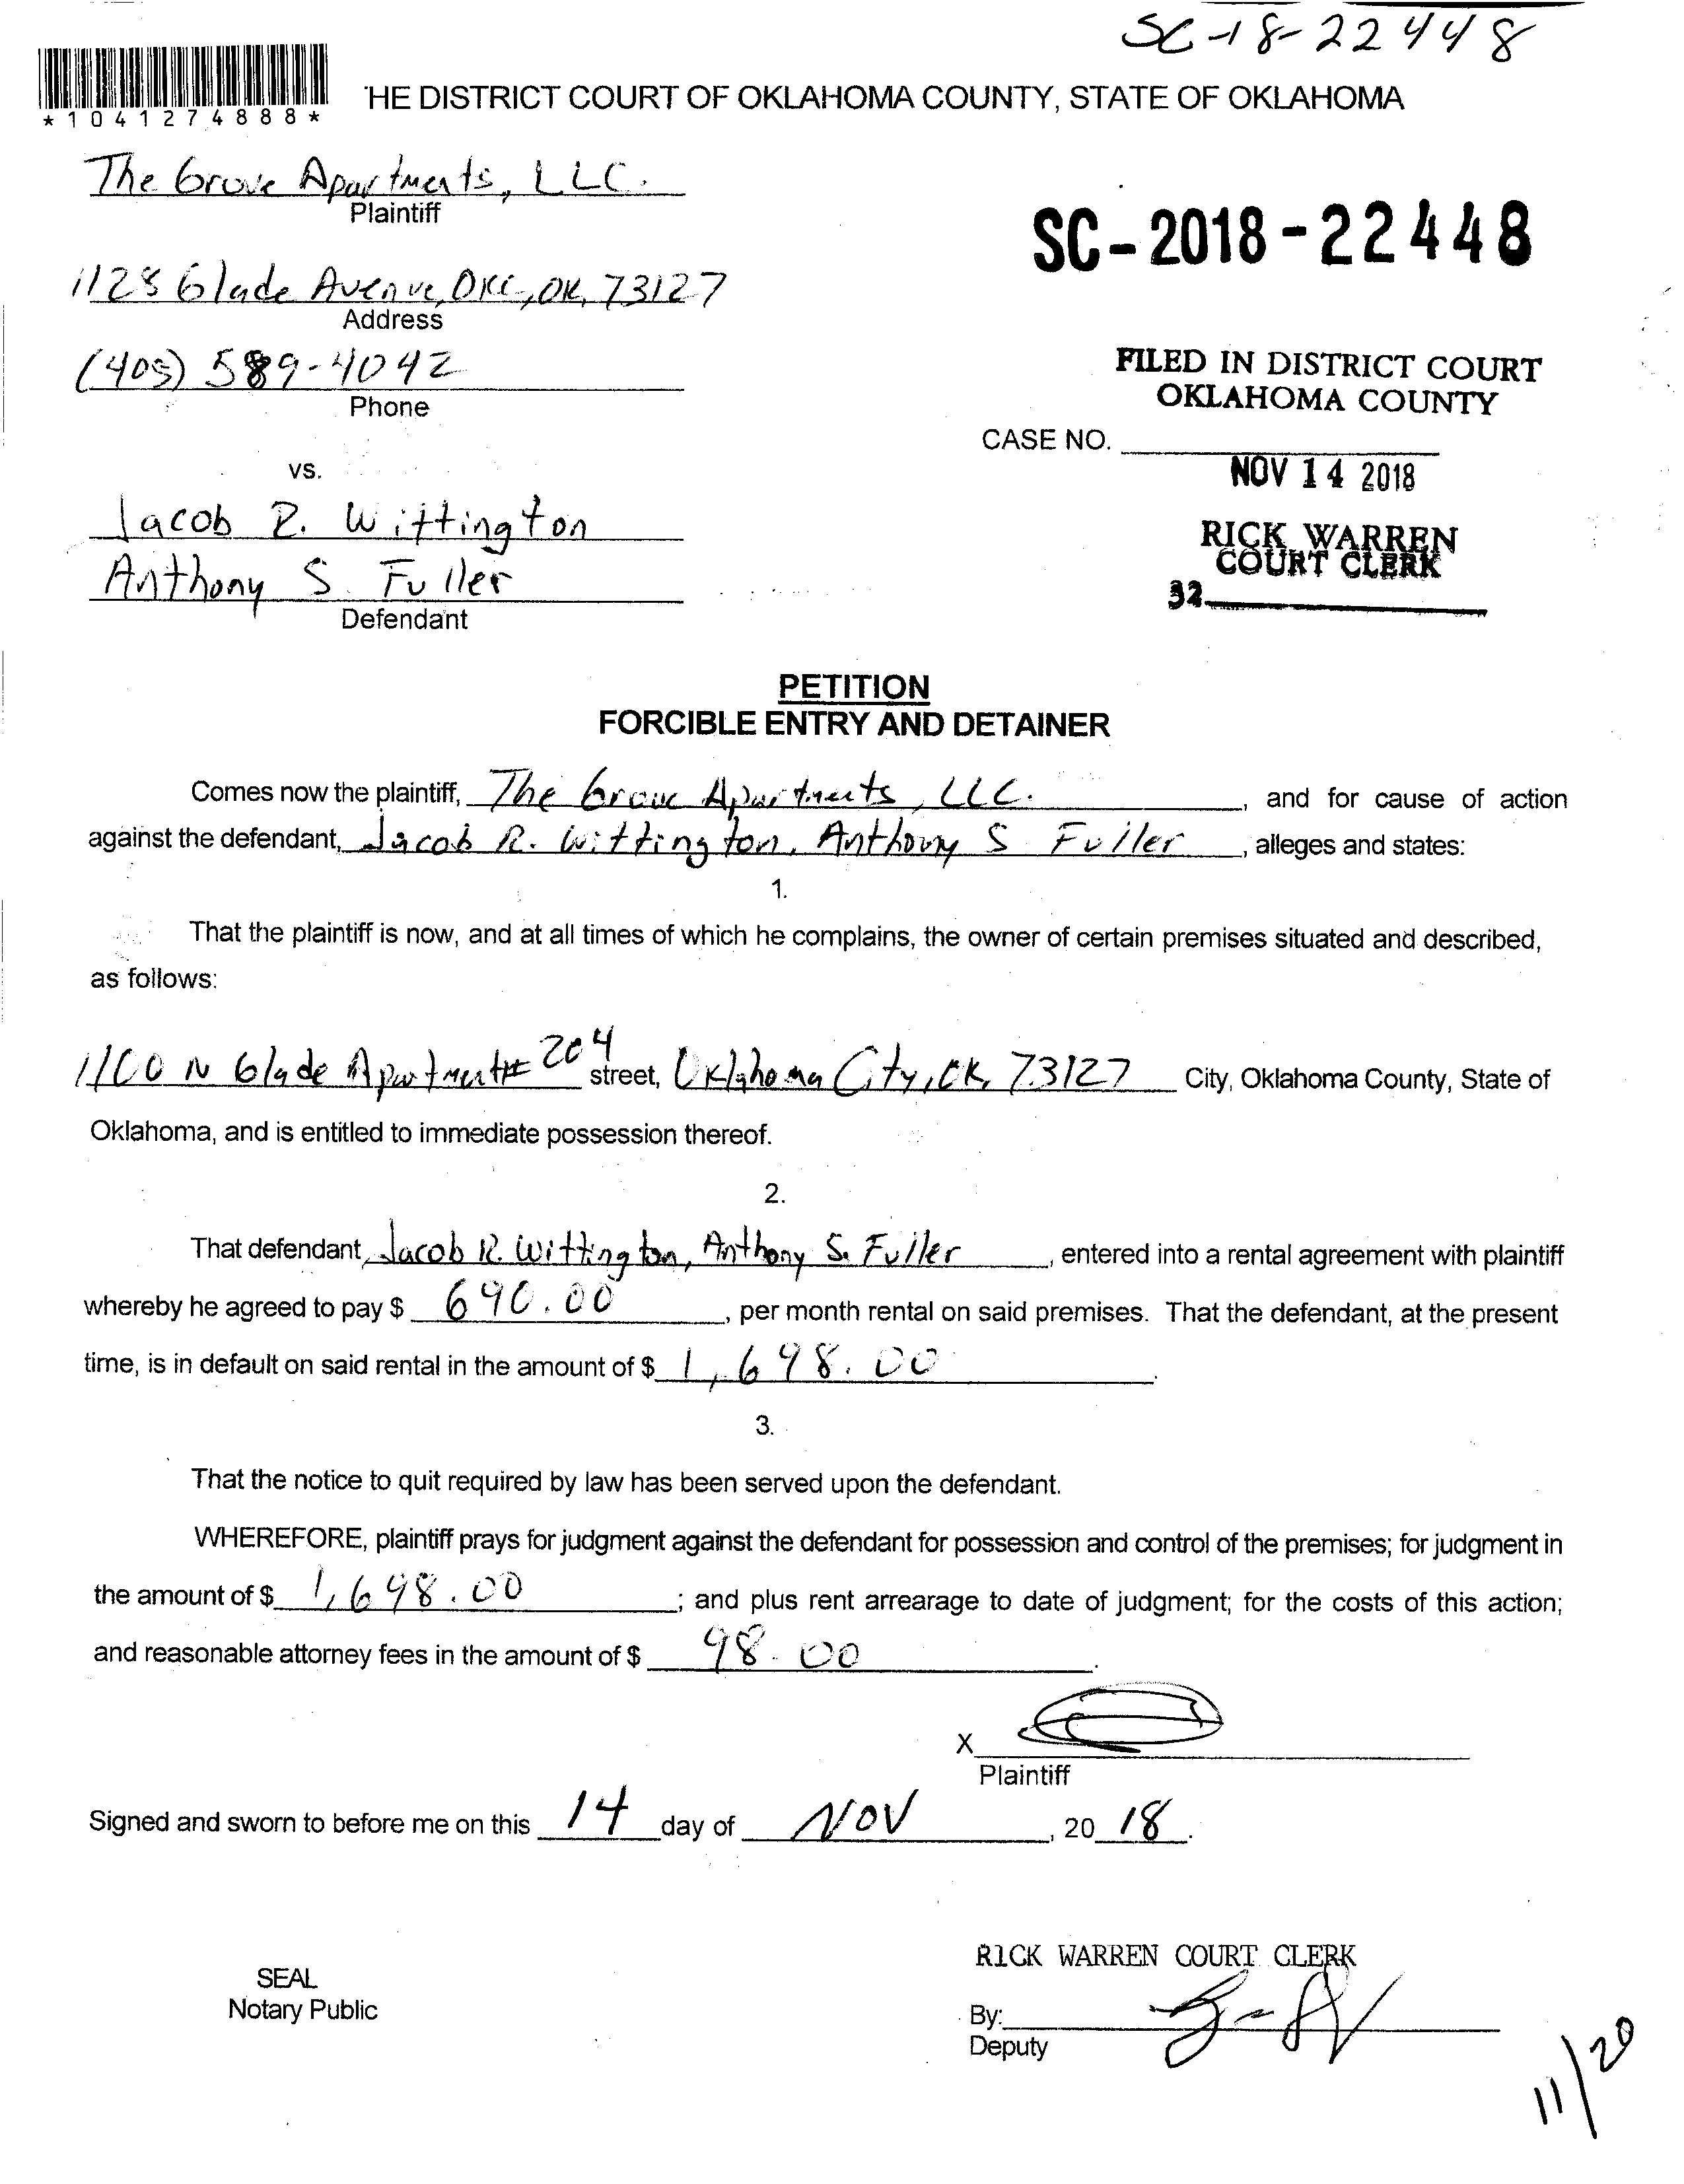 SC-18-22448
*1041274888*
'HE DISTRICT COURT OF OKLAHOMA COUNTY, STATE OF OKLAHOMA
The Grove Apartments, LLC.
Plaintiff
SC-2018-22448
1128 Glade Avenue, OKC, OK, 73127
Address
(405) 589-4042
Phone
FILED IN DISTRICT COURT
OKLAHOMA COUNTY
CASE NO.
NOV 14 2018
vs.
Jacob R. Wittington
RICK WARREN
COURT CLERK
Anthony S. Fuller
32
Defendant
PETITION
FORCIBLE ENTRY AND DETAINER
Comes now the plaintiff, The Grove Apartments, LLC. , and for cause of action
against the defendant, Jacob R. Wittington, Anthony S Fuller , alleges and states:
1.
That the plaintiff is now, and at all times of which he complains, the owner of certain premises situated and described,
as follows:
1100 N Glade Apartment# 204 street, Oklahoma City, OK, 73127 City, Oklahoma County, State of
Oklahoma, and is entitled to immediate possession thereof.
2.
That defendant, Jacob R. Wittington, Anthony S. Fuller , entered into a rental agreement with plaintiff
whereby he agreed to pay $ 690.00 , per month rental on said premises. That the defendant, at the present
time, is in default on said rental in the amount of $ 1,698.00 .
3.
That the notice to quit required by law has been served upon the defendant.
WHEREFORE, plaintiff prays for judgment against the defendant for possession and control of the premises; for judgment in
the amount of $ 1,698.00 ; and plus rent arrearage to date of judgment; for the costs of this action;
and reasonable attorney fees in the amount of $ 98.00 .
X
Plaintiff
Signed and sworn to before me on this 14 day of NOV , 20 18 .
RICK WARREN COURT CLERK
SEAL
Notary Public
By:
Deputy
11/20